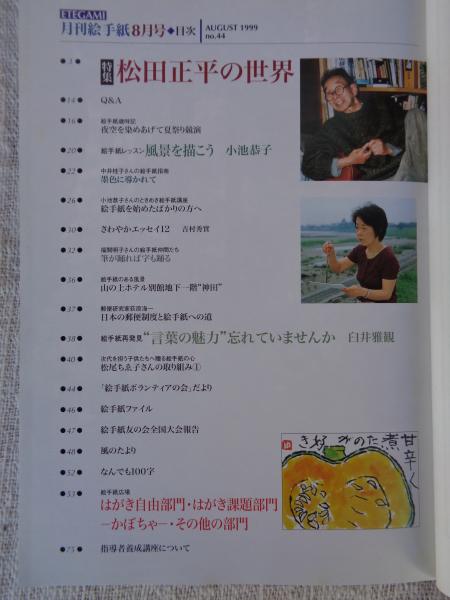 ETEGAMI
月刊絵手紙8月号◆目次
AUGUST 1999
no.44
●3●
特集 松田正平の世界
●14● Q&A
●16● 絵手紙歳時記
夜空を染めあげて夏祭り競演
●20● 絵手紙レッスン 風景を描こう 小池恭子
●22● 中井桂子さんの絵手紙指南
墨色に導かれて
●26● 小池恭子さんのときめき絵手紙講座
絵手紙を始めたばかりの方へ
●30● さわやかエッセイ12 吉村秀實
●32● 福間明子さんの絵手紙仲間たち
筆が踊れば字も踊る
●36● 絵手紙のある風景
山の上ホテル別館地下一階“神田”
●37● 郵便研究家荻原海一
日本の郵便制度と絵手紙への道
●38● 絵手紙再発見 “言葉の魅力”忘れていませんか 臼井雅観
●40● 次代を担う子供たちへ贈る絵手紙の心
松尾ちゑ子さんの取り組み①
●44● 「絵手紙ボランティアの会」だより
●46● 絵手紙ファイル
●47● 絵手紙友の会全国大会報告
●48● 風のたより
●52● なんでも100字
●53● 絵手紙広場
はがき自由部門・はがき課題部門
―かぼちゃ―・その他の部門
●75● 指導者養成講座について
甘辛く
煮たのが好き